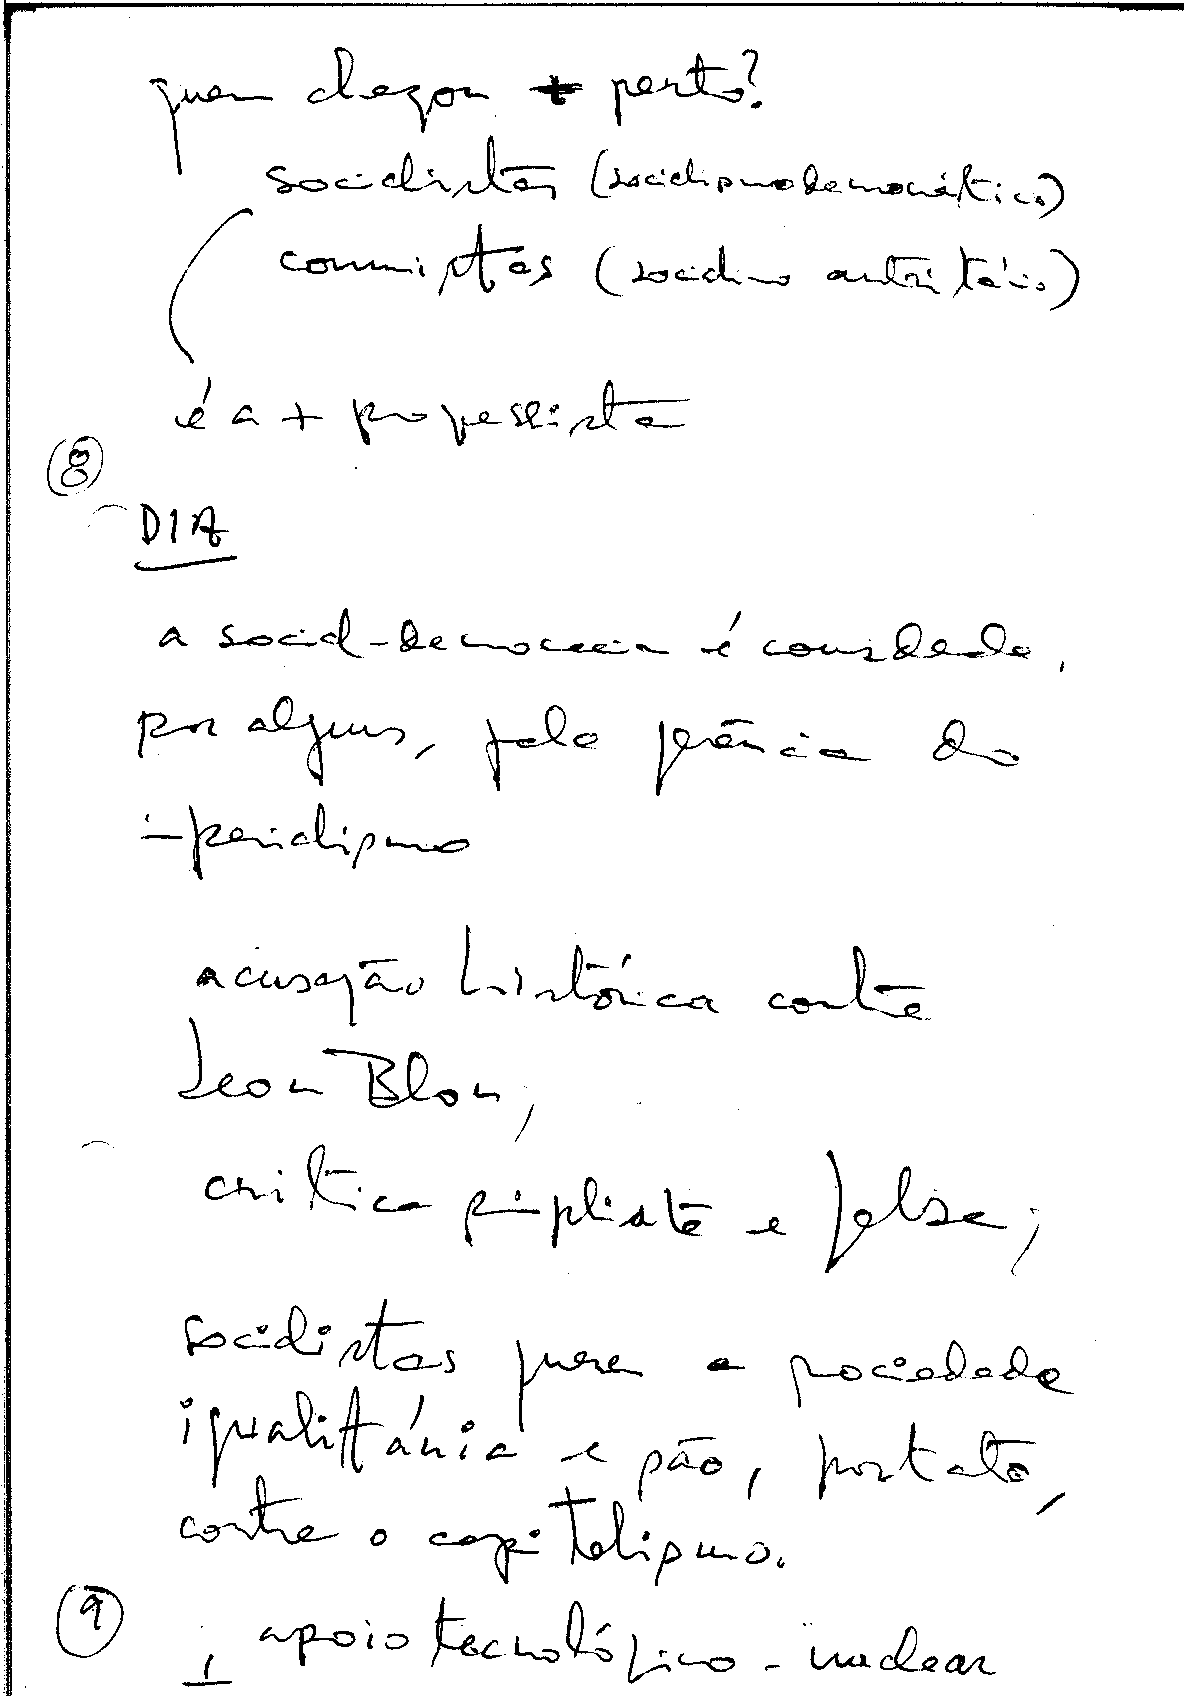 quem chegou + perto?
socialistas (socialismo democrático)
comunistas (socialismo autoritário)
é a + progressista
8
DIA
a social-democracia é considerada,
por alguns, pela gerência do
imperialismo
acusação histórica contra
Leon Blon;
crítica simplista e falsa;
socialistas querem a sociedade
igualitária e são, portanto,
contra o capitalismo.
9
1 apoio tecnológico-nuclear